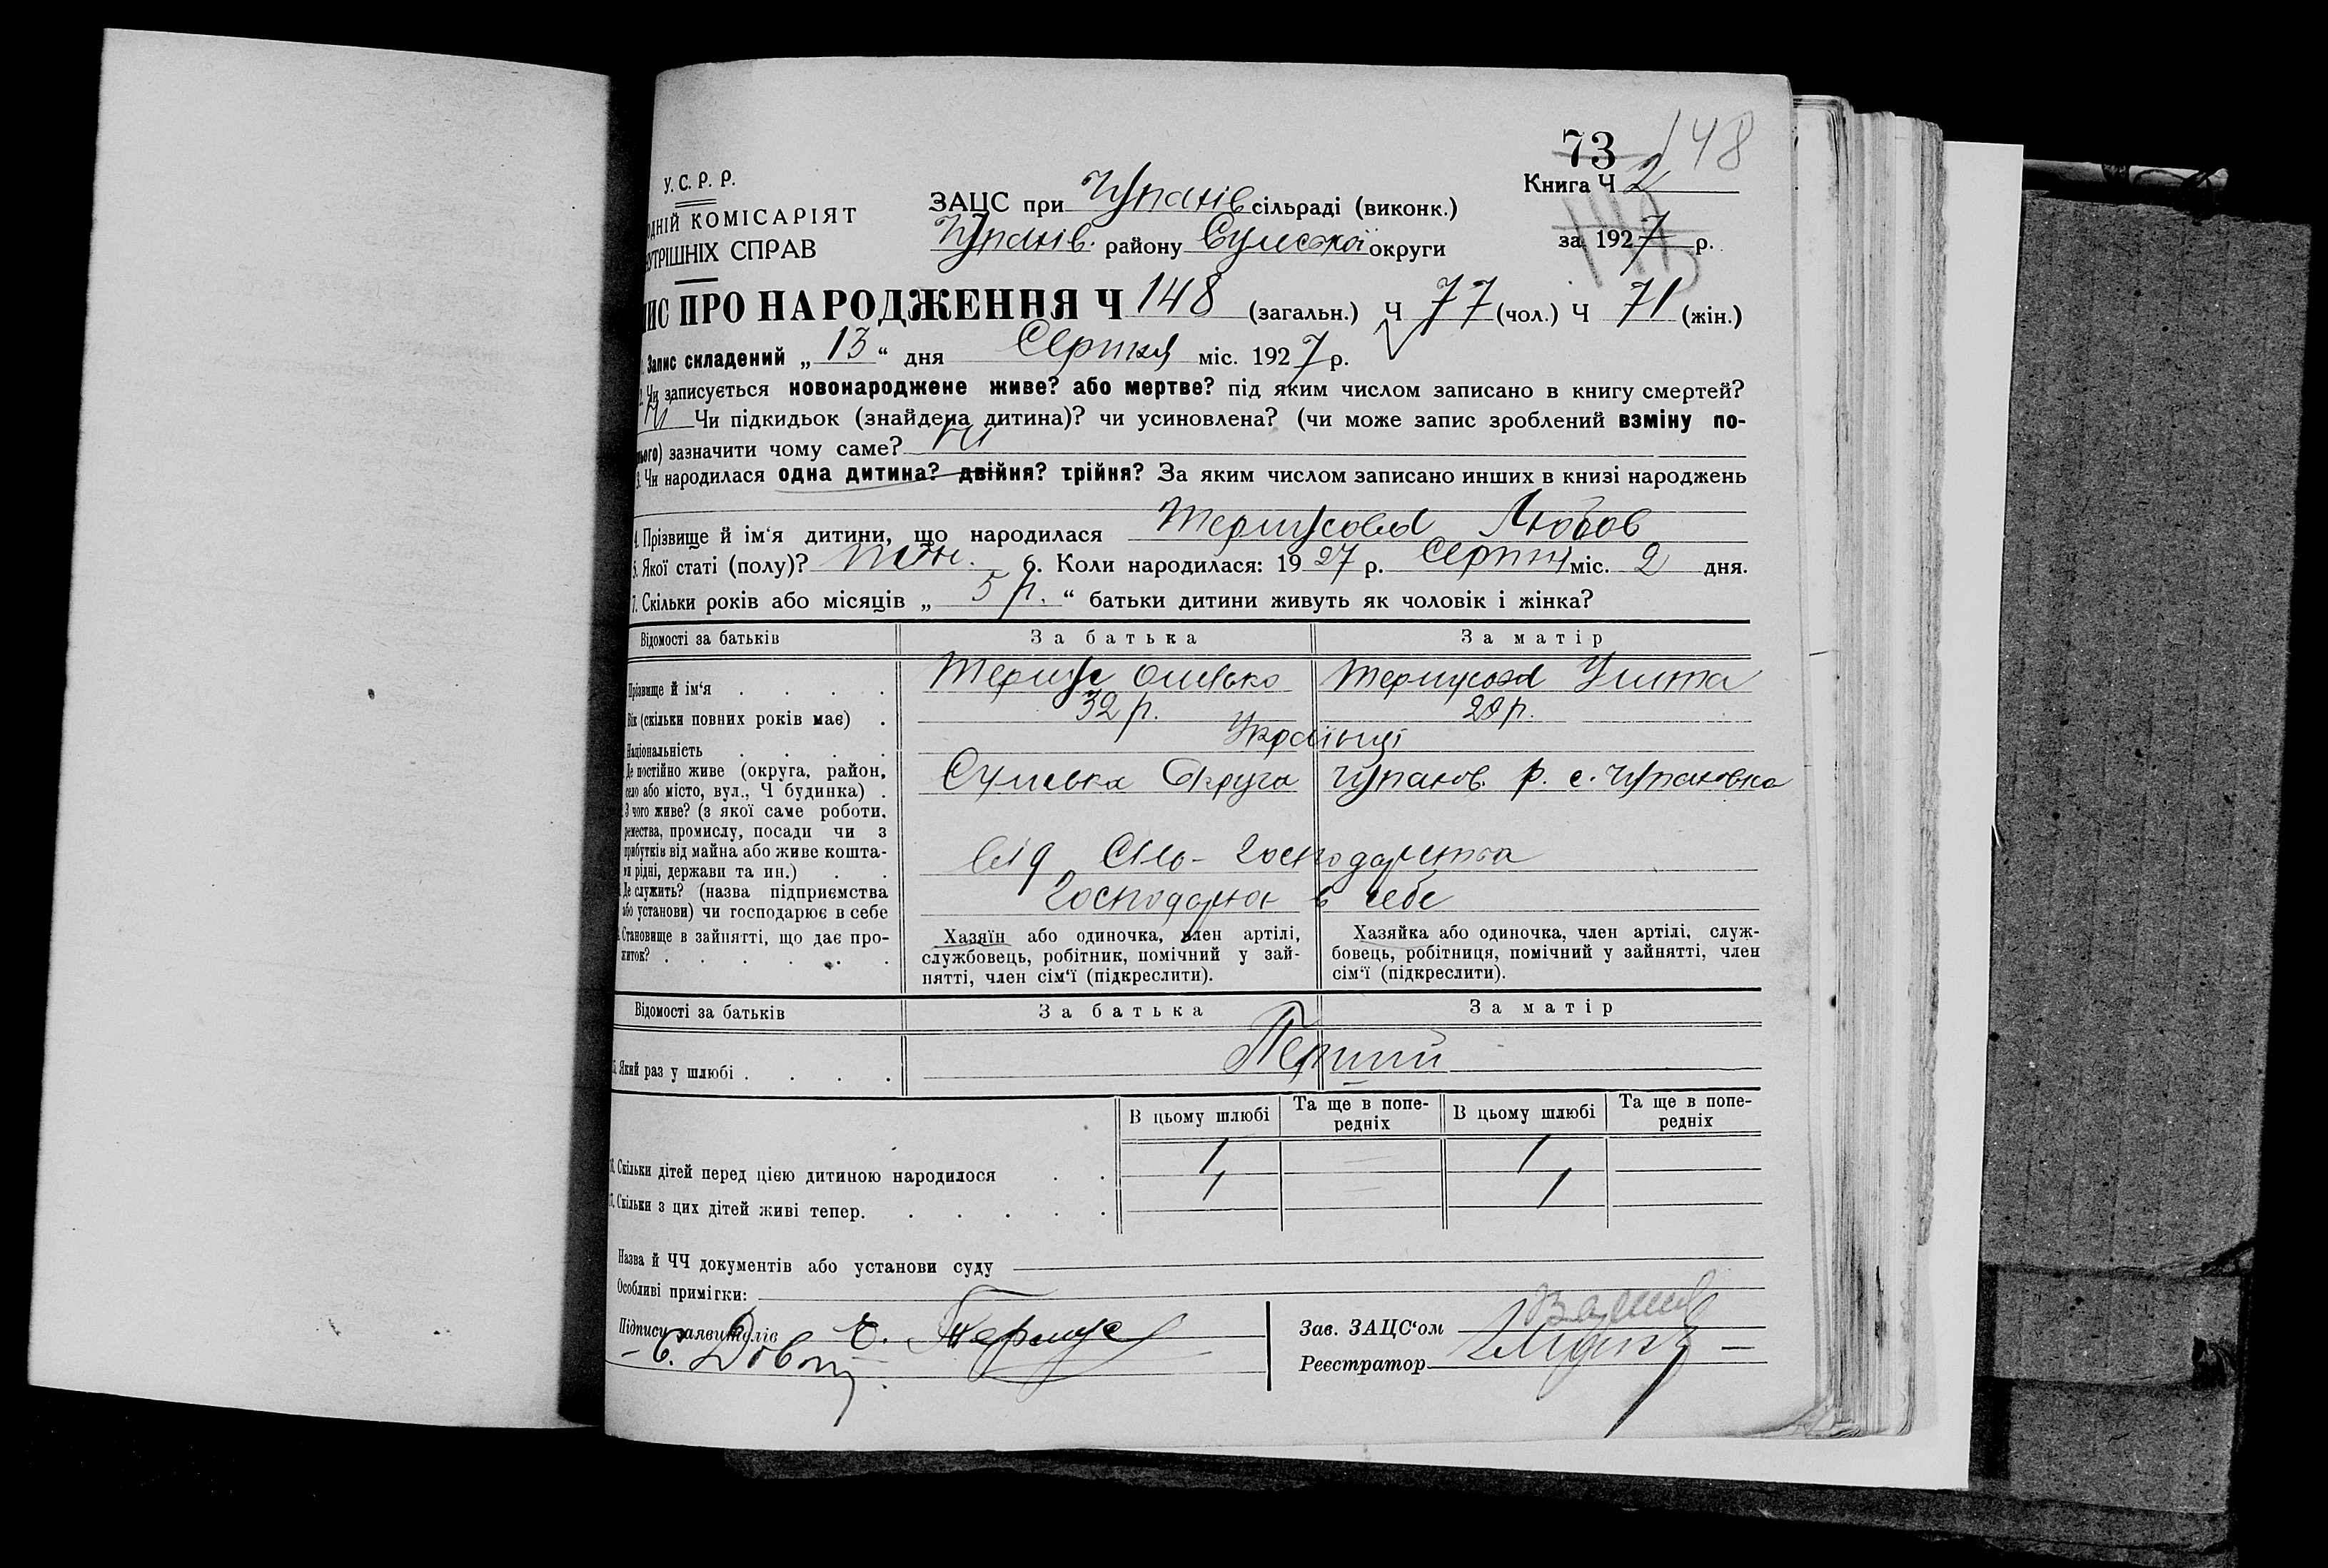 73 148
У. С. Р. Р.
Книга Ч 2
ЗАЦС при Чупахів сільраді (виконк.)
ОДНІЙ КОМІСАРІЯТ
Чупахів. району Сумської округи
за 1927 р.
УТРІШНІХ СПРАВ
ИС ПРО НАРОДЖЕННЯ Ч 148 (загальн.) Ч 77 (чол.) Ч 71 (жін.)
1. Запис складений „ 13 “ дня Серпня міс. 1927 р.
2. Чи записується новонароджене живе? або мертве? під яким числом записано в книгу смертей?
Ні Чи підкидьок (знайдена дитина)? чи усиновлена? (чи може запис зроблений взміну по-
нього) зазначити чому саме? Ні
3. Чи народилася одна дитина? двійня? трійня? За яким числом записано инших в книзі народжень
4. Прізвище й ім‘я дитини, що народилася Любов
5. Якої статі (полу)? жін. 6. Коли народилася: 1927 р. Серпня міс. 2 дня.
7. Скільки років або місяців „ 5 р. “ батьки дитини живуть як чоловік і жінка?
Відомості за батьків За батька За матір
Прізвище й ім‘я . . . .
Вік (скільки повних років має) . 32 р. 28 р.
Національність . . . . Українці
Де постійно живе (округа, район, село або місто, вул., Ч будинка) . Сумська Округа Чупахов. р. с. Чупаховка
З чого живе? (з якої саме роботи,
ремества, промислу, посади чи з
прибутків від майна або живе кошта-
ми рідні, держави та ин.) . . від Сіль-Господарства
Де служить? (назва підприємства
або установи) чи господарює в себе Господарює в себе
Становище в зайнятті, що дає про-
житок? . . . . . .
Хазяїн або одиночка, член артілі,
службовець, робітник, помічний у зай-
нятті, член сім‘ї (підкреслити).
Хазяйка або одиночка, член артілі, служ-
бовець, робітниця, помічний у зайнятті, член
сім‘ї (підкреслити).
Відомості за батьків За батька За матір
Який раз у шлюбі . . . . Перший
В цьому шлюбі Та ще в попе-
редніх В цьому шлюбі Та ще в попе-
редніх
16. Скільки дітей перед цією дитиною народилося . . 1 — 1
17. Скільки з цих дітей живі тепер. . . . . . 1 — 1
Назва й ЧЧ документів або установи суду
Особливі примітки:
Підписи заявителів
Зав. ЗАЦС‘ом
Реєстратор